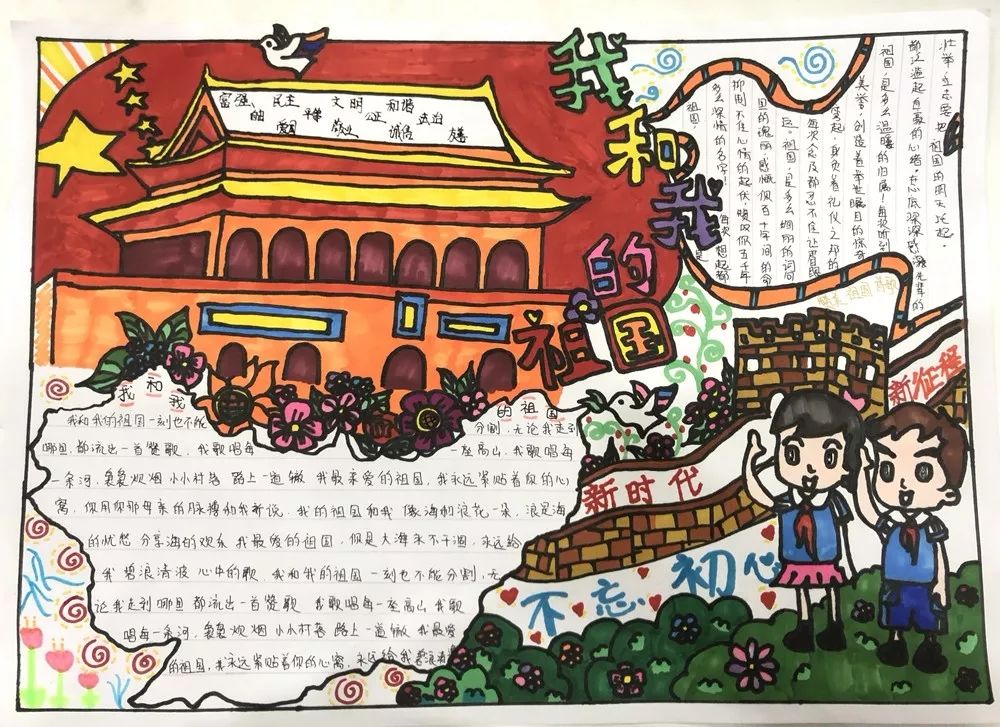 我和我的祖国
富强、 民主 文明 和谐
平等 公正 法治
爱国 敬业 诚信 友善
祖国,是
多么深情的名字!每次想起都
抑制不住心情的起伏,赞叹你五千年
里的瑰丽,感慨你百十年间的奋
起。祖国,是多么绚丽的词句
每次念及都忍不住让眉眼
笑起,身负着礼仪之邦的
美誉,创造着举世瞩目的惊奇
祖国,是多么温暖的归属!每次听到
都汇造起自豪的心绪,在心底深深感激先辈的
壮举,立志要把祖国的明天托起。
新征程
新时代
不忘初心
我和我的祖国
我和我的祖国一刻也不能分割,无论我走到
哪里 都流出一首赞歌,我歌唱每一座高山,我歌唱每
一条河,袅袅炊烟 小小村落 路上一道辙 我最亲爱的祖国,我永远紧贴着你的心
窝,你用你那母亲的脉搏和我诉说,我的祖国和我 像海和浪花一朵,浪是海
的忧愁 分享海的欢乐 我最爱的祖国,你是大海永不干涸,永远给
我碧浪清波 心中的歌,我和我的祖国 一刻也不能分割,无
论我走到哪里 都流出一首赞歌 我歌唱每一座高山 我歌
唱每一条河,袅袅炊烟 小小村落 路上一道辙 我最爱
的祖国,我永远紧贴着你的心窝,永远给我碧浪清